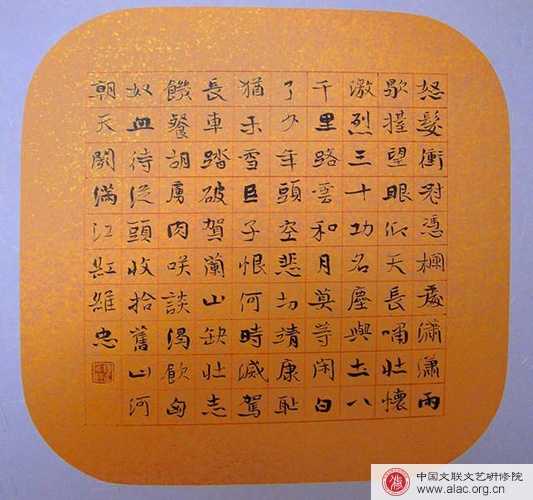 怒髮衝冠憑欄處瀟瀟雨
歇擡望眼仰天長嘯壯懷
激烈三十功名塵與土八
千里路雲和月莫等閑白
了少年頭空悲切靖康恥
猶未雪臣子恨何時滅駕
長車踏破賀蘭山缺壯志
饑餐胡虜肉咲談渴飲匈
奴血待從頭收拾舊山河
朝天闕滿江紅維忠
中国文联文艺研修院
www.alac.org.cn